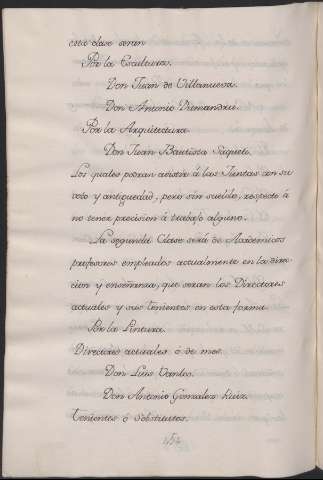 esta clase seran
Por la Escultura.
Don Juan de Villanueva.
Don Antonio Dumandre.
Por la Arquitectura
Don Juan Bautista Saqueti.
Los quales podran asistir á las Juntas con su
voto y antiguedad, pero sin sueldo, respecto á
no tener precision á trabajo alguno.
La segunda Clase será de Academicos
profesores empleados actualmente en la direc
cion y enseñanza, que seran los Directores
actuales y sus tenientes en esta forma.
Por la Pintura.
Directores actuales ó de mes.
Don Luis Vanloo.
Don Antonio Gonzalez Ruiz.
Tenientes ó Substitutos.